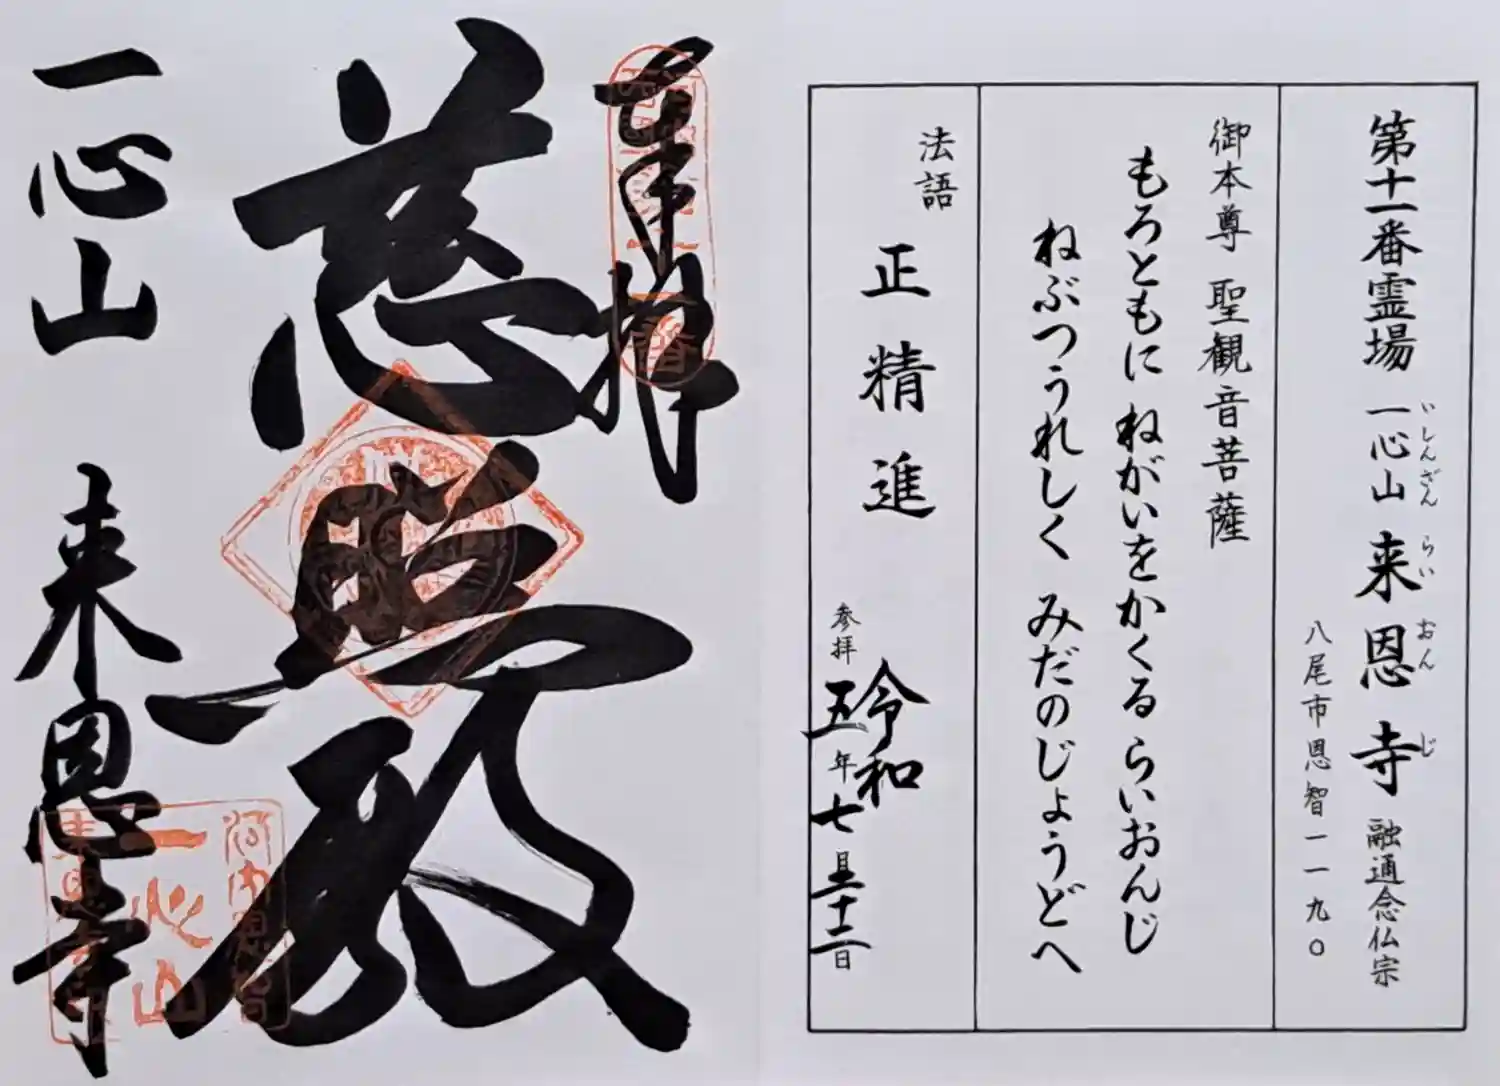 第十一番霊場 一心山 来恩寺 融通念仏宗
いしんざん らいおんじ
八尾市恩智一一九〇
御本尊 聖観音菩薩
もろともに ねがいをかくる らいおんじ
ねぶつうれしく みだのじょうどへ
法語 正精進
参拝 令和五年七月二十二日
奉拝
慈照殿
一心山 来恩寺
河内恩智
一心山
来恩寺印